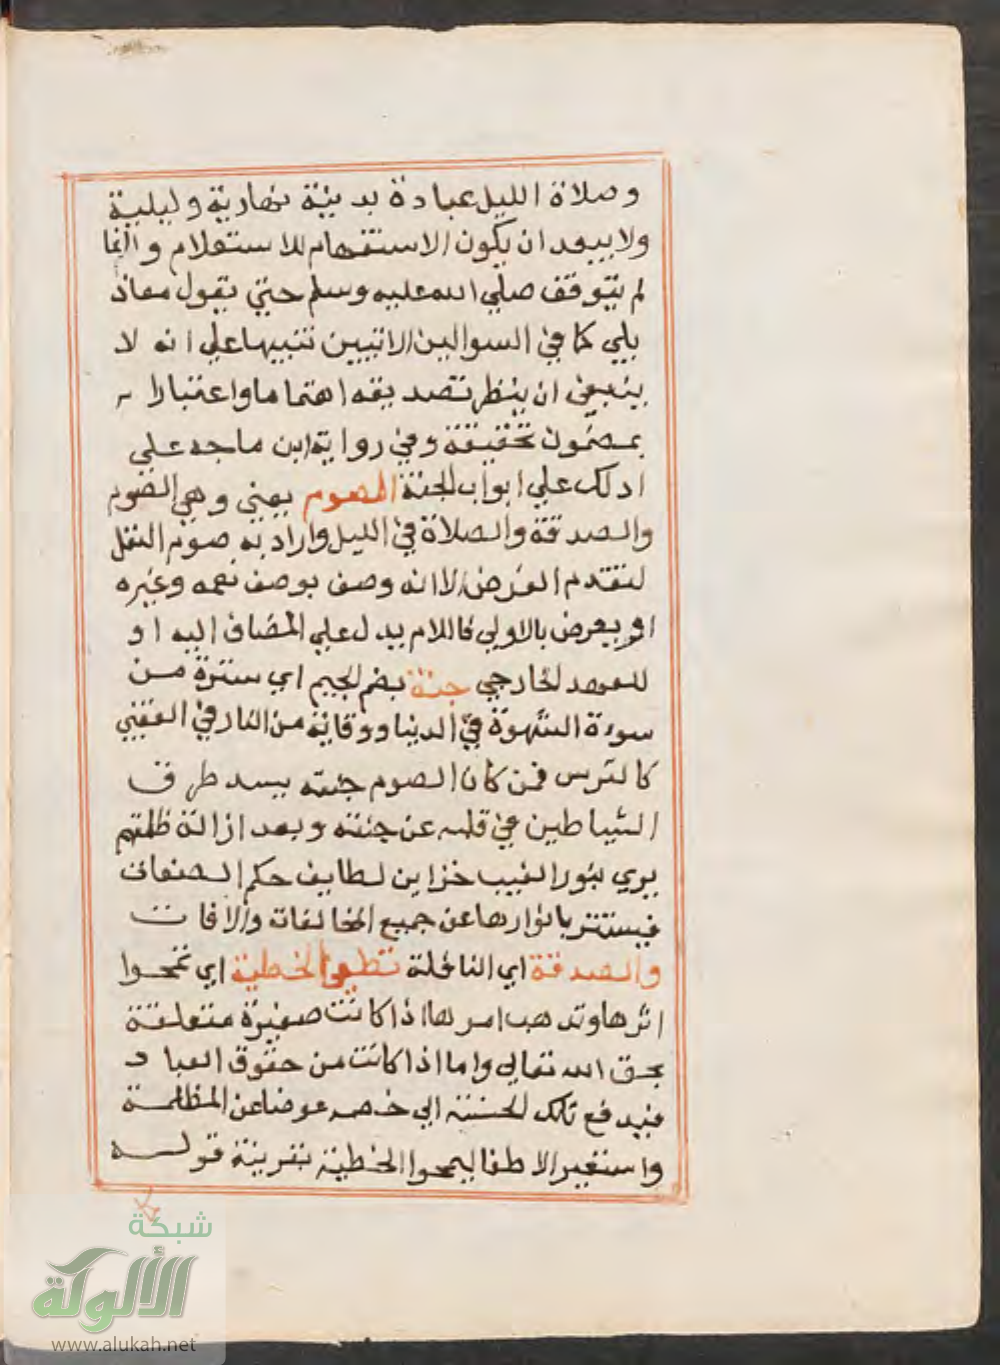 وصلاة الليل عبادة بدنية نهارية وليلية
ولا يبعد ان يكون الاستفهام للاستعلام وانما
لم يتوقف صلي الله عليه وسلم حتي يقول معاذ
بلي كما في السوالين الاتيين تنبيها علي انه لا
ينبغي ان ينظر تصديقه اهتماما واعتبارا
بمضمون تحقيقة وفي رواية ابن ماجه علي
ادلك علي ابواب الجنة الصوم يعني وهي الصوم
والصدقة والصلاة في الليل واراد به صوم النفل
لتقدم الفرض الا انه وصف بوصف نعمه وغيره
او يعرض بالاولي فاللام يدل علي المضاف اليه او
للعهد الخارجي جنة بضم الجيم اي سترة من
سورة الشهوة في الدنيا ووقاية من النار في العقبي
كالترس فمن كان الصوم جنته يسد طرق
الشياطين عن قلبه عن جنته وبعد ازالة ظلمتهم
يري بنور الغيب خزاين لطايف حكم الصفات
فيستتر بانوارها عن جميع المخالفات والافات
والصدقة اي النافلة تطفئ الخطية اي تمحوا
اثرها وتذهب امرها اذا كانت صغيرة متعلقة
بحق الله تعالي واما اذا كانت من حقوق العباد
فيدفع تلك الحسنة الي خصمه عوضا عن المظلمة
واستعير الاطفا ليمحوا الخطية بقرينة قوله
شبكة
الألوكة
www.alukah.net